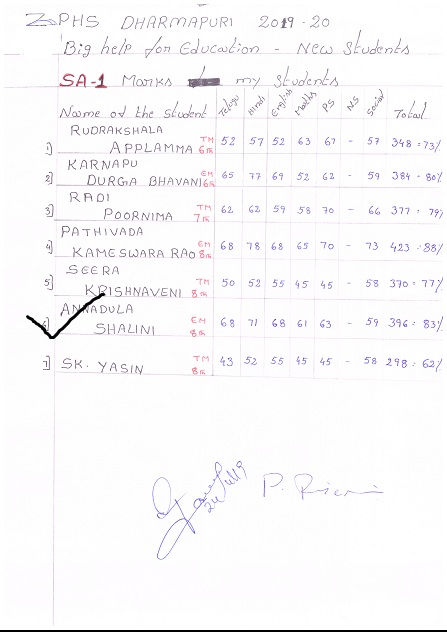 ZPHS DHARMAPURI 2019-20
Big help for Education - New Students
SA-1 Marks my Students
Name of the Student Telugu Hindi English Maths PS NS Social Total
1) RUDRAKSHALA
APPLAMMA TM 6th 52 57 52 63 67 - 57 348 = 73%
2) KARNAPU
DURGA BHAVANI EM 6th 65 77 69 52 62 - 59 384 = 80%
3) RADI
POORNIMA TM 7th 62 62 59 58 70 - 66 377 = 79%
4) PATHIVADA
KAMESWARA RAO EM 8th 68 78 68 65 70 - 73 423 = 88%
5) SEERA
KRISHNAVENI TM 8th 50 52 55 45 45 - 58 370 = 77%
ANNADULA
SHALINI EM 8th 68 71 68 61 63 - 59 396 = 83%
7) SK. YASIN TM 8th 43 52 55 45 45 - 58 298 = 62%
P.